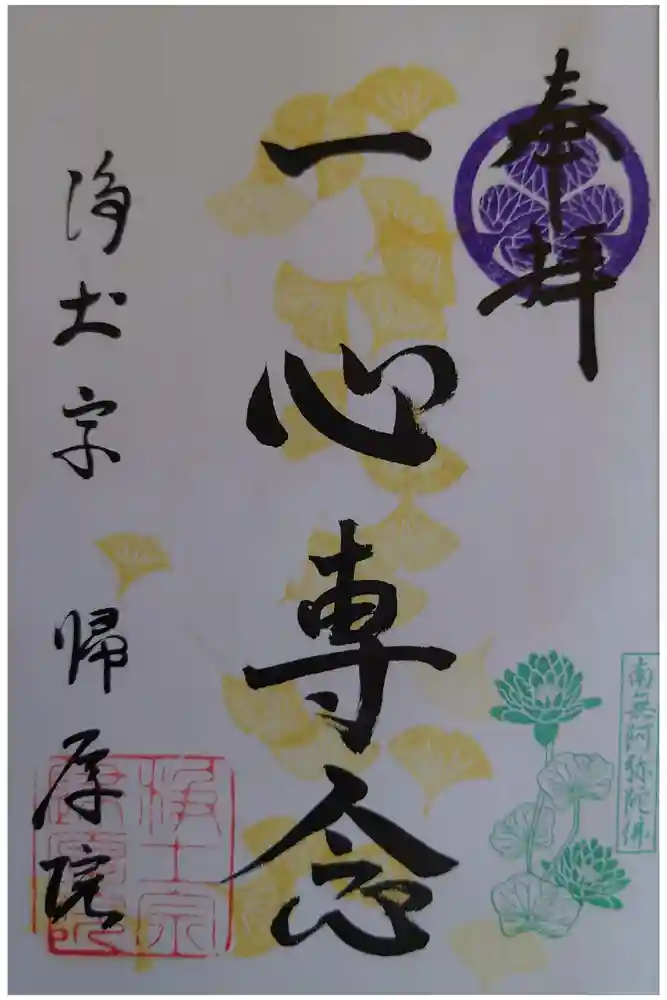 奉拝
南無阿弥陀佛
一心専念
浄土宗 帰厚院